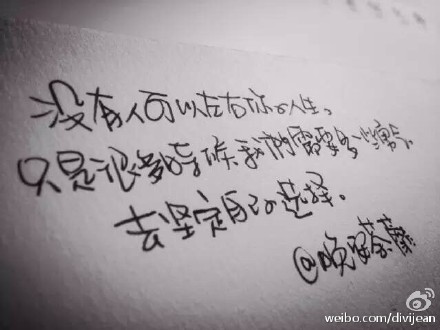 没有人可以左右你的人生。
只是很多時候我們需要多一些勇气
去坚定自己的选择。
weibo.com/divijean